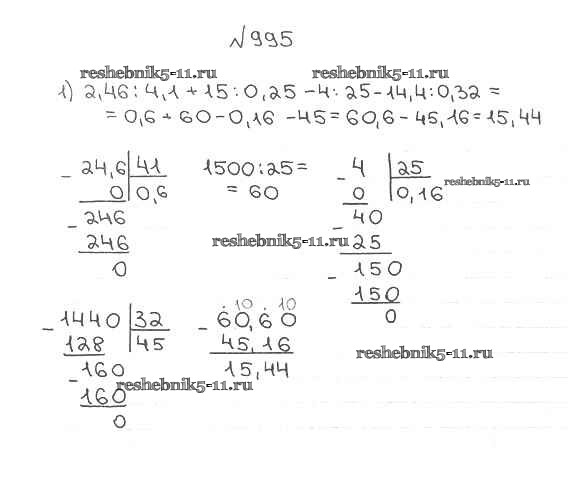 №995
reshebnik5-11.ru reshebnik5-11.ru
1) 2,46:4,1+15:0,25-4:25-14,4:0,32=
=0,6+60-0,16-45=60,6-45,16=15,44
- 24,6 | 41
0 | 0,6
- 246
246
0
1500:25=
=60
- 4 | 25
0 | 0,16
reshebnik5-11.ru
- 40
25
- 150
150
0
reshebnik5-11.ru
- 1440 | 32
128 | 45
- 160
160
0
reshebnik5-11.ru
10 10
- 60,60
45,16
15,44
reshebnik5-11.ru